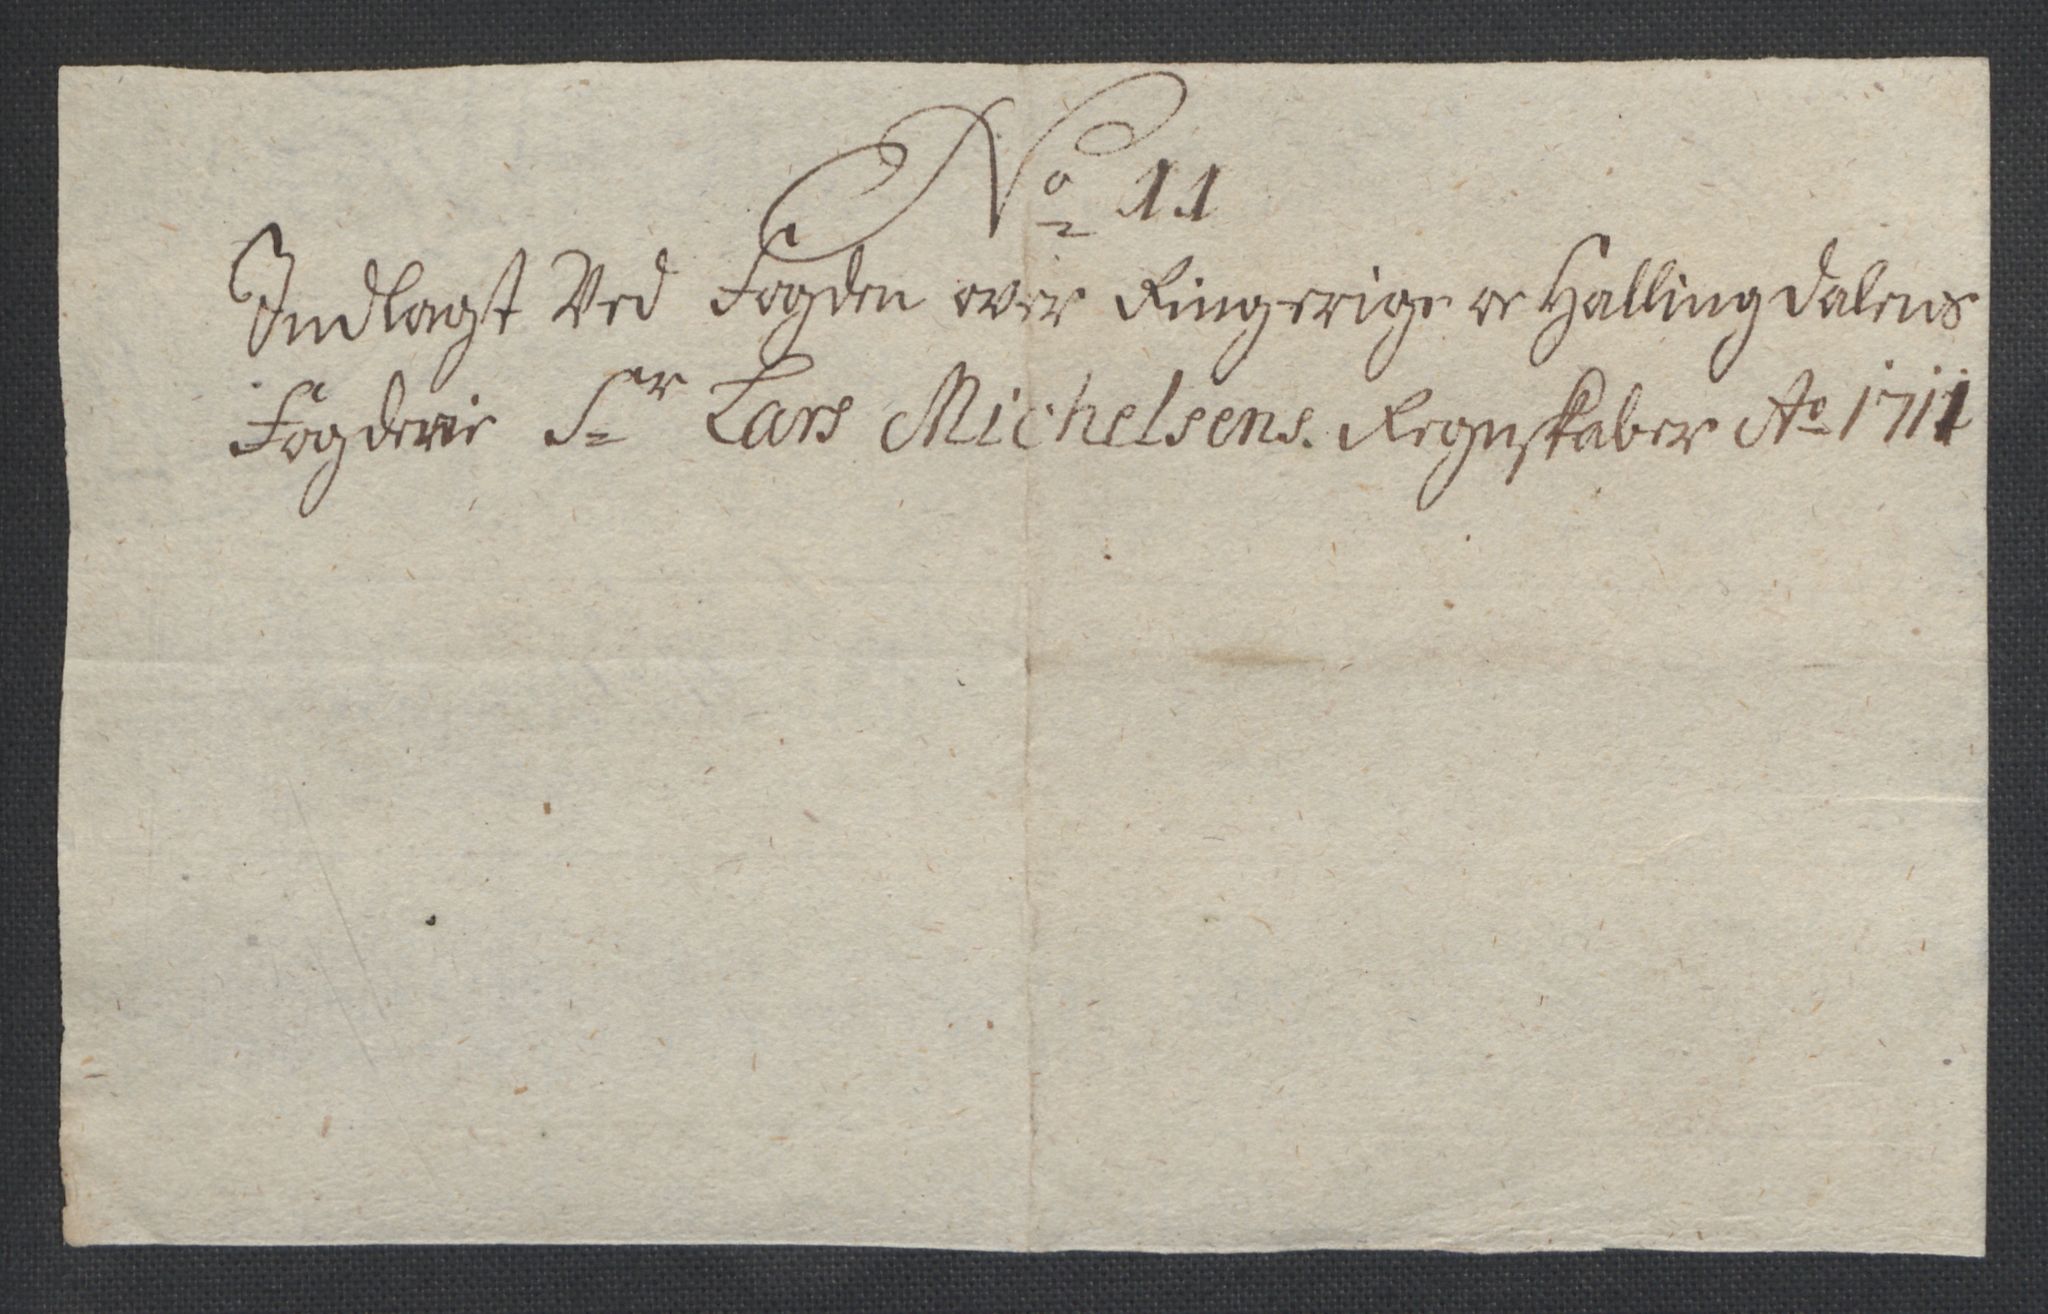 No 11
Indlagt Ved Fogden over Ringerige oc Hallingdalens
Fogderie Sr Lars Michelsens. Regnskaber Ao 1711